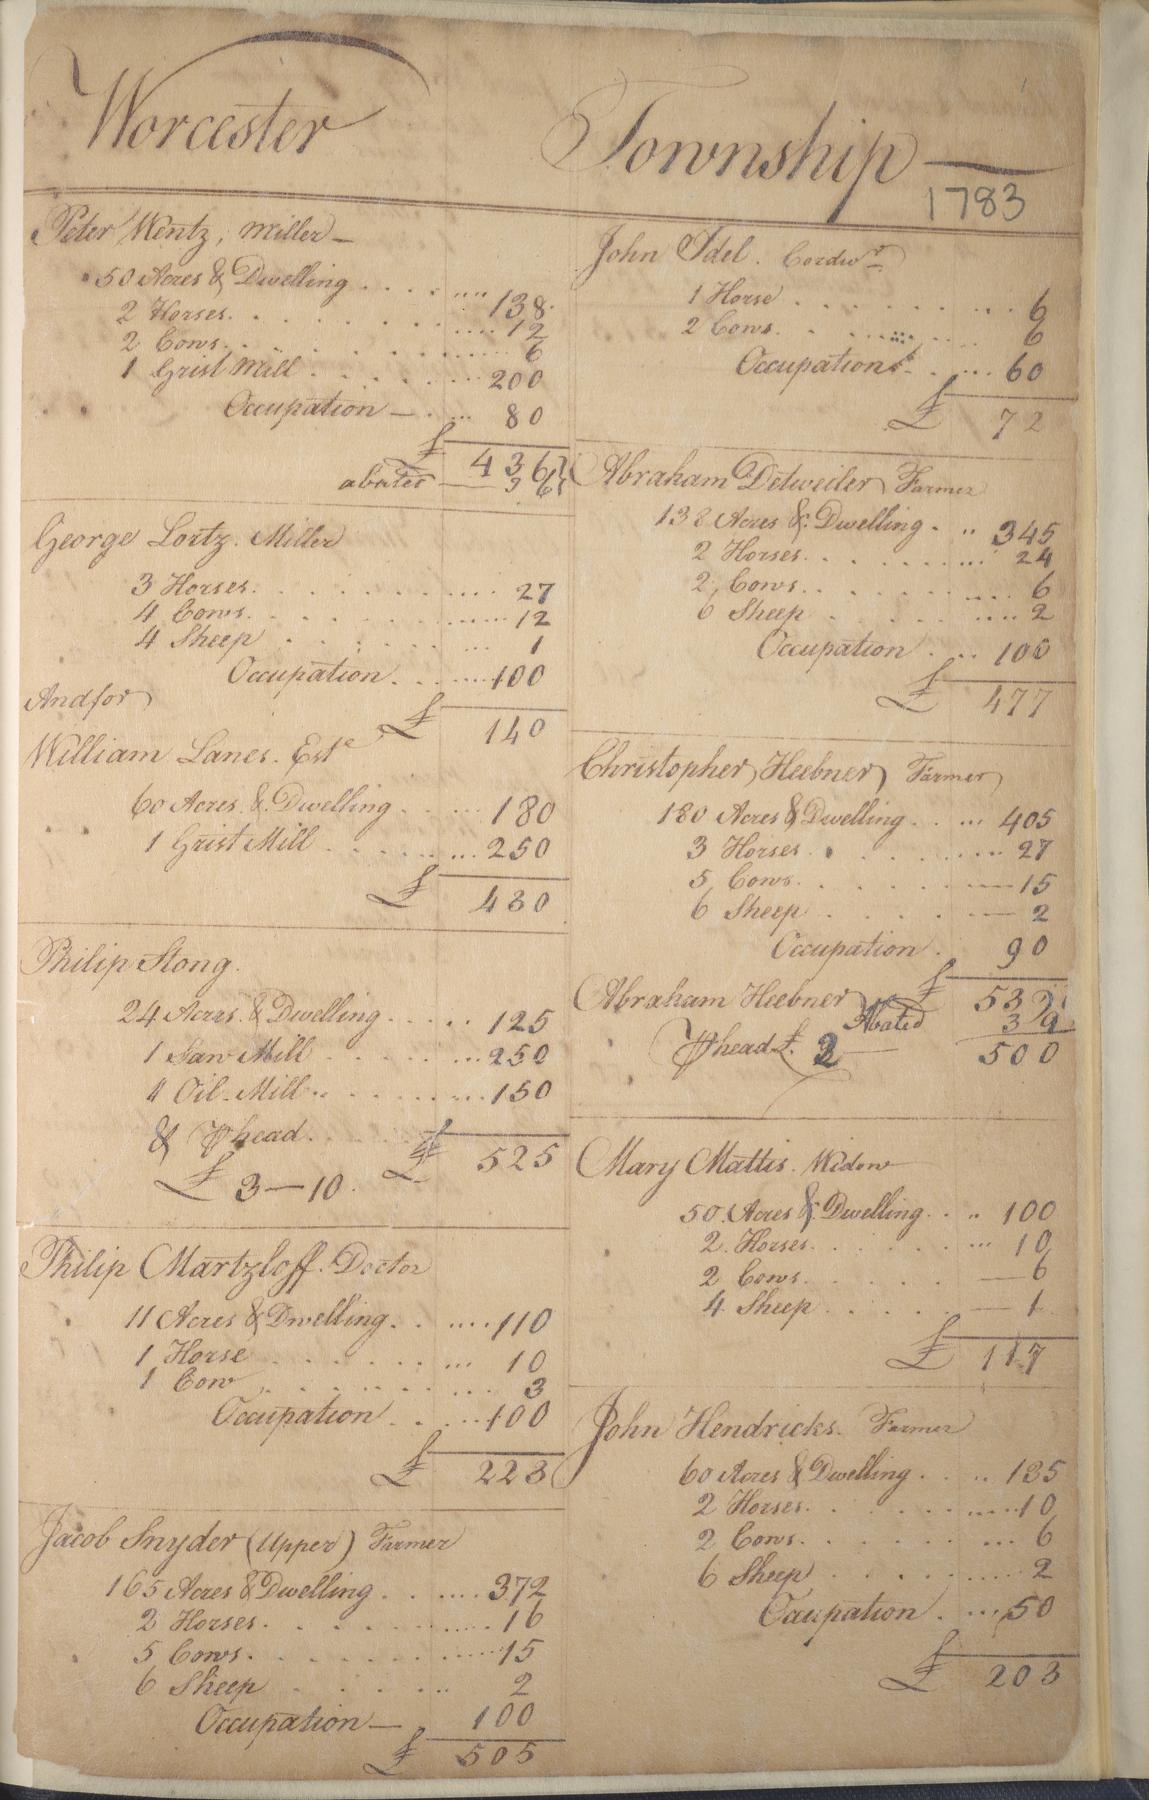 Worcester Township
1783
Peter Wentz, Miller
50 Acres & Dwelling 138
2 Horses 12
2 Cows 6
1 Grist Mill 200
Occupation 80
£ 436
abated 36
George Lortz. Miller
3 Horses 27
4 Cows 12
4 Sheep 1
Occupation 100
£ 140
And for
William Lanes. Este
60 Acres & Dwelling 180
1 Grist Mill 250
£ 430
Philip Stong.
24 Acres & Dwelling 125
1 Saw Mill 250
" Oil Mill 150
& P head.
£ 525
£ 3—10.
Philip Martzloff. Doctor
11 Acres & Dwelling 110
1 Horse 10
1 Cow 3
Occupation 100
£ 223
Jacob Snyder (Upper) Farmer
165 Acres & Dwelling 372
2 Horses 16
5 Cows 15
6 Sheep 2
Occupation 100
£ 505
John Idel. Cordwr
1 Horse 6
2 Cows 6
Occupation 60
£ 72
Abraham Detweiler Farmer
138 Acres & Dwelling 345
2 Horses 24
2 Cows 6
6 Sheep 2
Occupation 100
£ 477
Christopher Heebner Farmer
180 Acres & Dwelling 405
3 Horses 27
5 Cows 15
6 Sheep 2
Occupation 90
£ 539
Abraham Heebner Abated 39
P head £. 3 500
Mary Mattis. Widow
50 Acres & Dwelling 100
2 Horses 10
2 Cows 6
4 Sheep 1
£ 117
John Hendricks. Farmer
60 Acres & Dwelling 135
2 Horses 10
2 Cows 6
6 Sheep 2
Occupation 50
£ 203